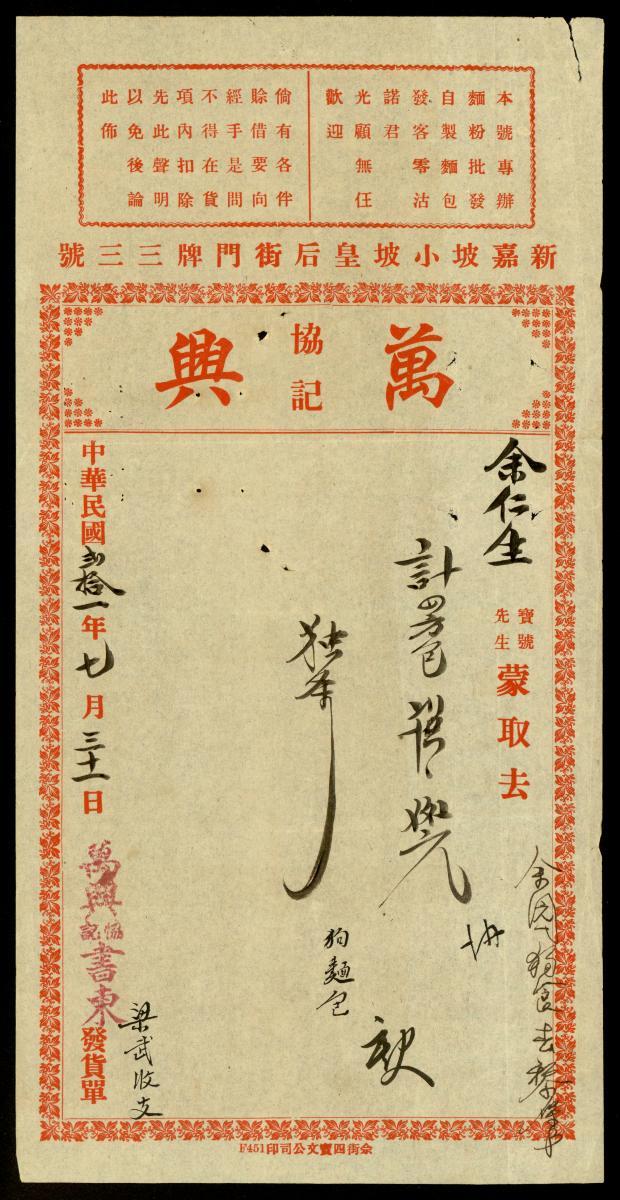 本號專辦
麵粉批發
自製麵包
發客零沽
諸君
光顧無任
歡迎
倘有各伴
賒借要向
經手是問
不得在貨
項內扣除
先此聲明
以免後論
此佈
新嘉坡小坡皇后街門牌三三號
萬興
協記
余仁生
寶號
先生
蒙取去
計四方包
狗麵包
中華民國弍拾一年七月三十一日
萬興協記書柬
發貨單
梁武收支
余街四寶文公司印F451